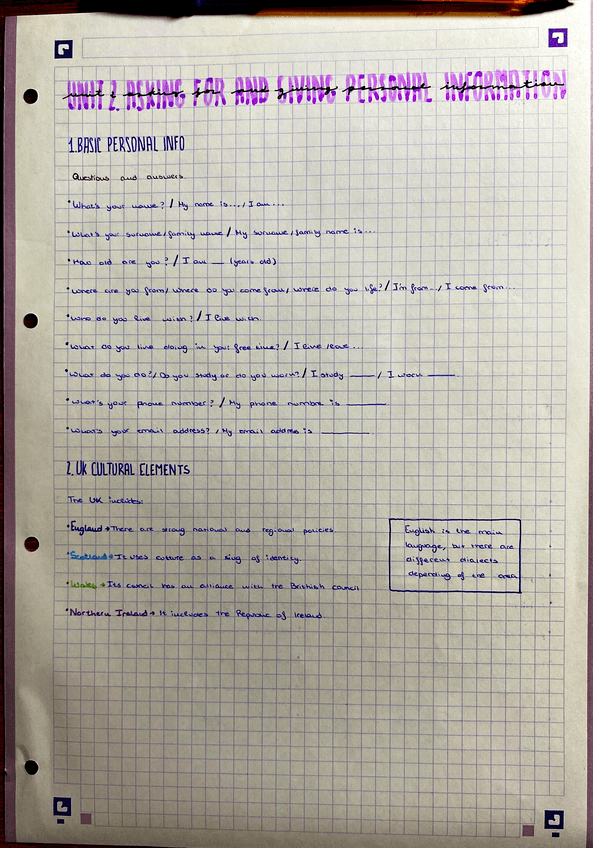 UNIT 2. ASKING FOR AND GIVING PERSONAL INFORMATION
unit 2 asking for and giving personal information
1. BASIC PERSONAL INFO
Questions and answers.
•What's your name? / My name is... / I am...
•What's your surname/family name / My surname/family name is...
•How old are you? / I am ___ (years old)
•Where are you from/ Where do you come from/ where do you life? / I'm from... / I come from...
•Who do you live with? / I live with.
•What do you like doing in your free time? / I like/love...
•What do you do?/ Do you study or do you work? / I study _____ / I work _____.
•What's your phone number? / My phone numbre is _______
•What's your email address? / My email address is ________.
2. UK CULTURAL ELEMENTS
The UK includes:
•England → There are strong national and regional policies.
•Scotland → It uses culture as a sing of identity.
•Wales → Its council has an alliance with the Brithish council
•Northern Ireland → It includes the Republic of Ireland.
English is the main
language, but there are
different dialects
depending of the area